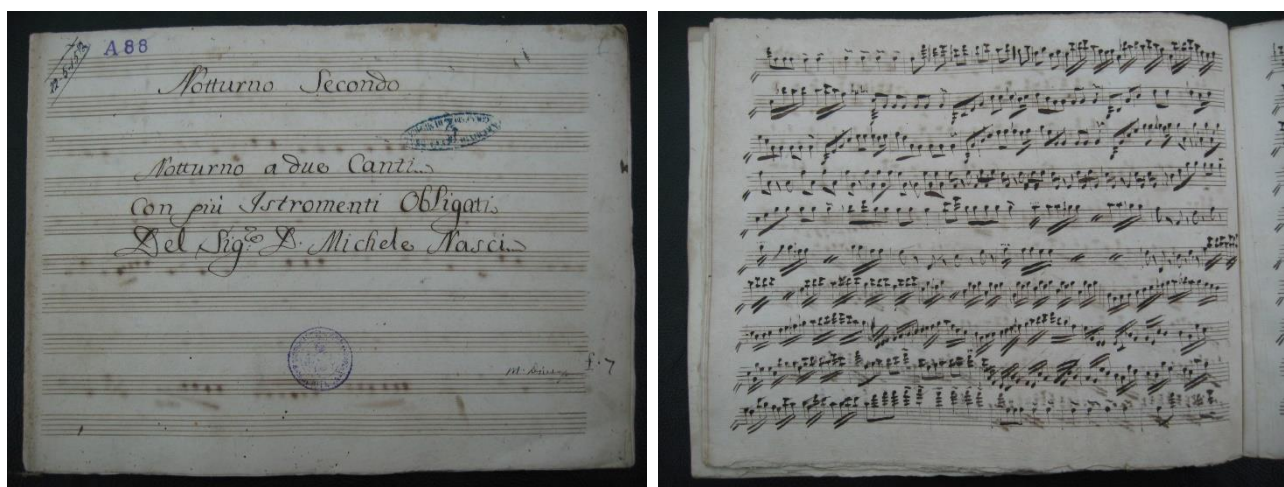 A 88
Notturno Secondo
Notturno a due Canti
con più Istromenti Obligati
Del Sig.re D. Michele Nasci
f. 7